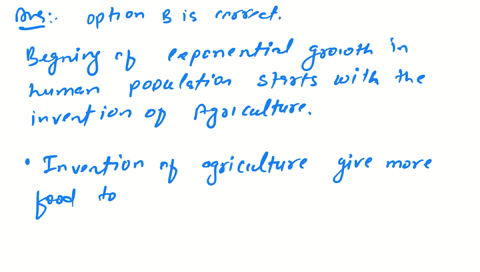 Ans:- option B is correct.
Begning of exponential growth in
human population starts with the
invention of Agriculture.
• Invention of agriculture give more
food to